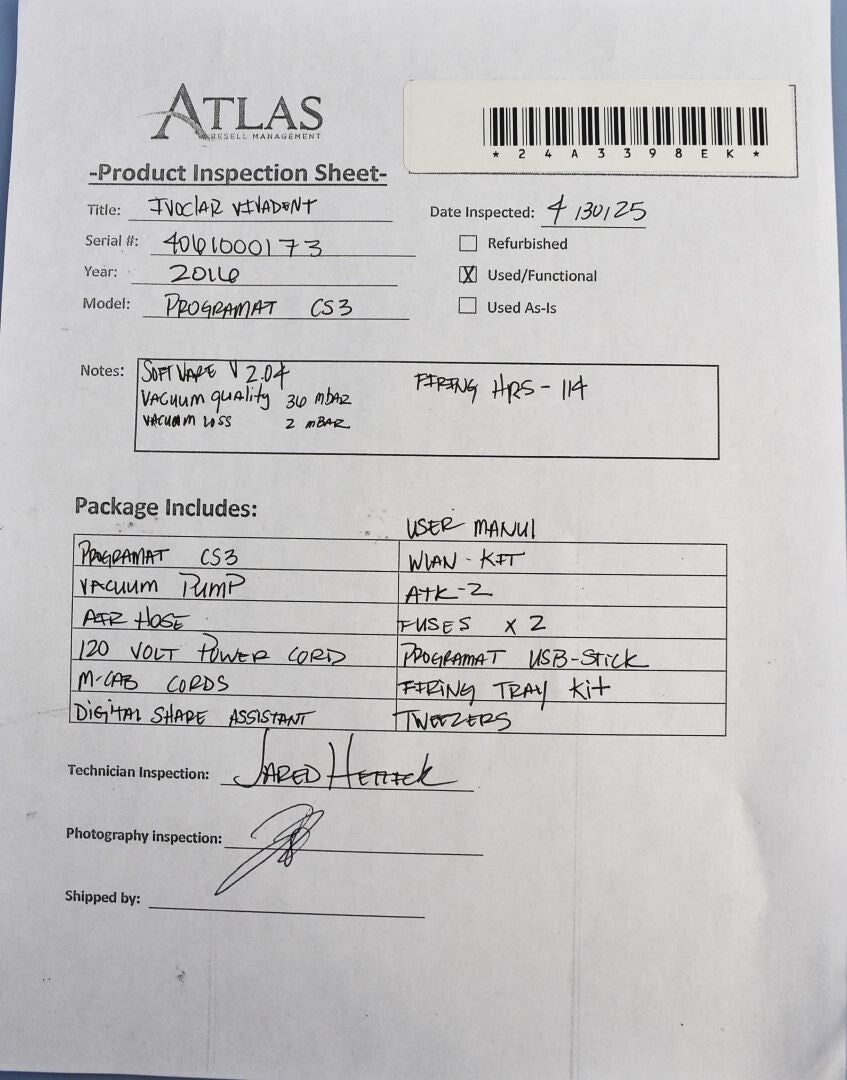 ATLAS
RESELL MANAGEMENT
*24A3398EK*
-Product Inspection Sheet-
Title: IVOCLAR VIVADENT
Date Inspected: 4/30/25
Serial #: 4061000173
Refurbished
Year: 2016
X Used/Functional
Model: PROGRAMAT CS3
Used As-Is
Notes: SOFTWARE V 2.04
FIRING HRS - 114
VACUUM QUALITY 36 mBAR
VACUUM LOSS 2 mBAR
Package Includes:
USER MANUL
PROGRAMAT CS3
WLAN-KIT
VACUUM PUMP
ATK-2
AIR HOSE
FUSES X 2
120 VOLT POWER CORD
PROGRAMAT USB-STICK
M-CAB CORDS
FIRING TRAY KIT
DIGITAL SHADE ASSISTANT
TWEEZERS
Technician Inspection: JARED
Photography inspection:
Shipped by: